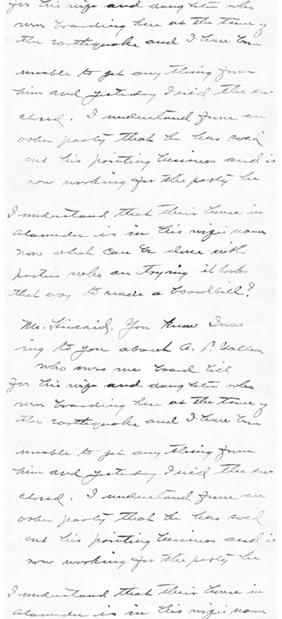 for his wife and daughter who
were boarding here at the time of
the earthquake and I have been
unable to get any thing from
him and yesterday I rec'd the en-
closed. I understand from an
other party that he has sold
out his printing business and is
now working for the party he
I understand that their house in
Alameda is in his wife's name
now what can be done with
parties who are trying it looks
that way to evade a board bill?
Mr. Kincaid, You know I was
ing to you about A.
who owes me board bill
for his wife and daughter who
were boarding here at the time of
the earthquake and I have been
unable to get any thing from
him and yesterday I rec'd the en-
closed. I understand from an
other party that he has sold
out his printing business and is
now working for the party he
I understand that their house in
Alameda is in his wife's name